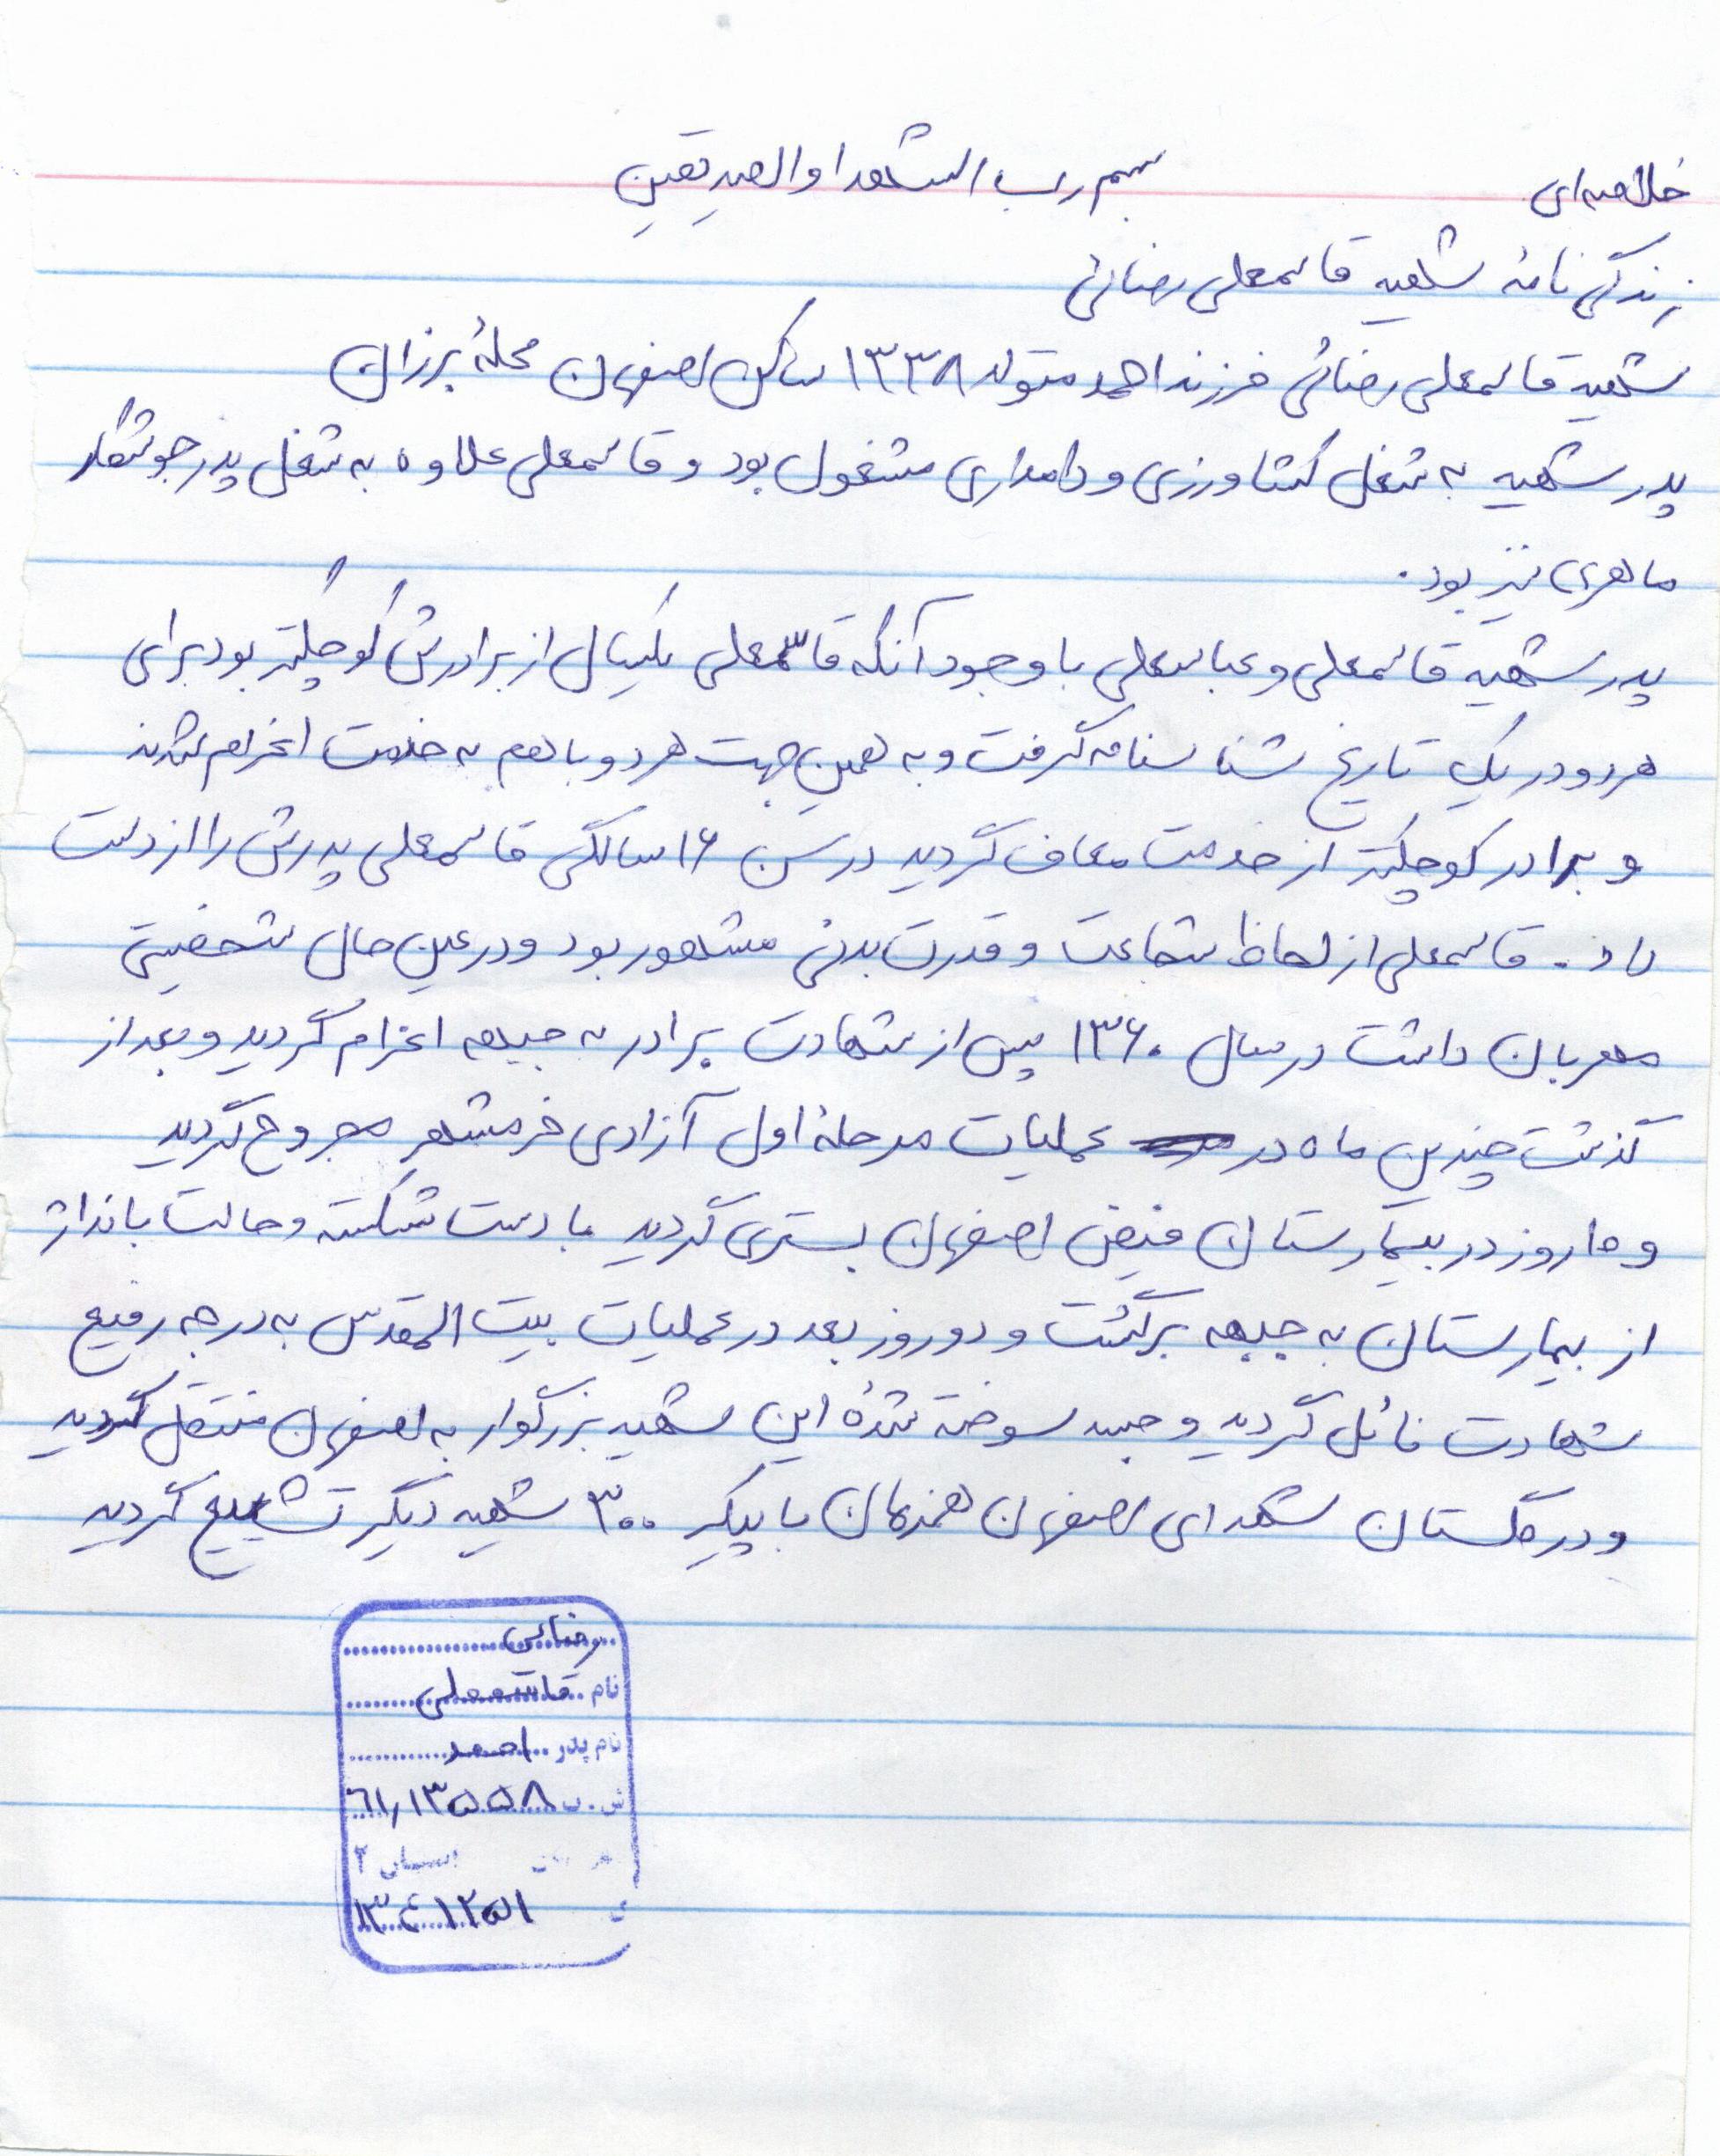 بسم رب الشهدا والصدیقین
خلاصه‌ای
زندگی نامهٔ شهید قاسمعلی رضائی
شهید قاسمعلی رضائی فرزند احمد متولد ۱۳۳۸ ساکن اصفهان محلهٔ برزان
پدر شهید به شغل کشاورزی و دامداری مشغول بود و قاسمعلی علاوه به شغل پدر جوشکار
ماهری نیز بود.
پدر شهید قاسمعلی و عباسعلی با وجود آنکه قاسمعلی یکسال از برادرش کوچکتر بود برای
هر دو در یک تاریخ شناسنامه گرفت و به همین جهت هر دو با هم به خدمت اعزام شدند
و برادر کوچکتر از خدمت معاف گردید در سن ۱۶ سالگی قاسمعلی پدرش را از دست
داد. قاسمعلی از لحاظ شجاعت و قدرت بدنی مشهور بود و در عین حال شخصیتی
مهربان داشت در سال ۱۳۶۰ پس از شهادت برادر به جبهه اعزام گردید و بعد از
گذشت چندین ماه در عملیات مرحلهٔ اول آزادی خرمشهر مجروح گردید
و ۱۵ روز در بیمارستان فیض اصفهان بستری گردید با دست شکسته و حالت بانداژ
از بیمارستان به جبهه برگشت و دو روز بعد در عملیات بیت المقدس به درجه رفیع
شهادت نائل گردید و جسد سوخته شدهٔ این شهید بزرگوار به اصفهان منتقل گردید
و در گلستان شهدای اصفهان همزمان با پیکر ۳۰۰ شهید دیگر تشییع گردید
رضائی
نام قاسمعلی
نام پدر احمد
ش. ب ۶۱٫۱۳۵۵۸